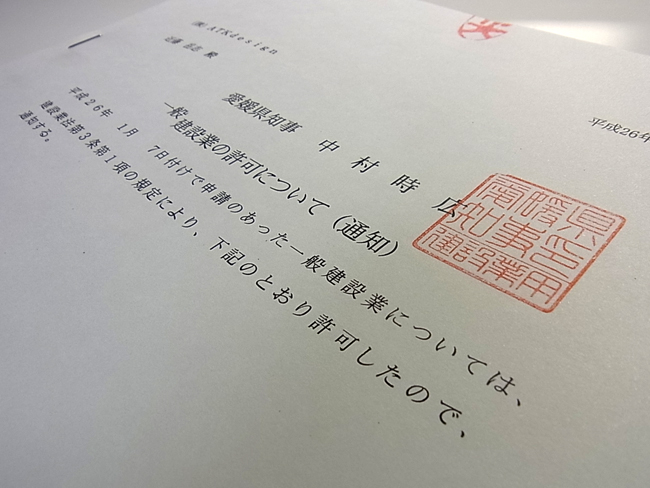 (株)ATKdesign
殿
平成26年
愛媛県知事 中村時広
一般建設業の許可について(通知)
平成26年 1月 7日付けで申請のあった一般建設業については、
建設業法第3条第1項の規定により、下記のとおり許可したので、
通知する。